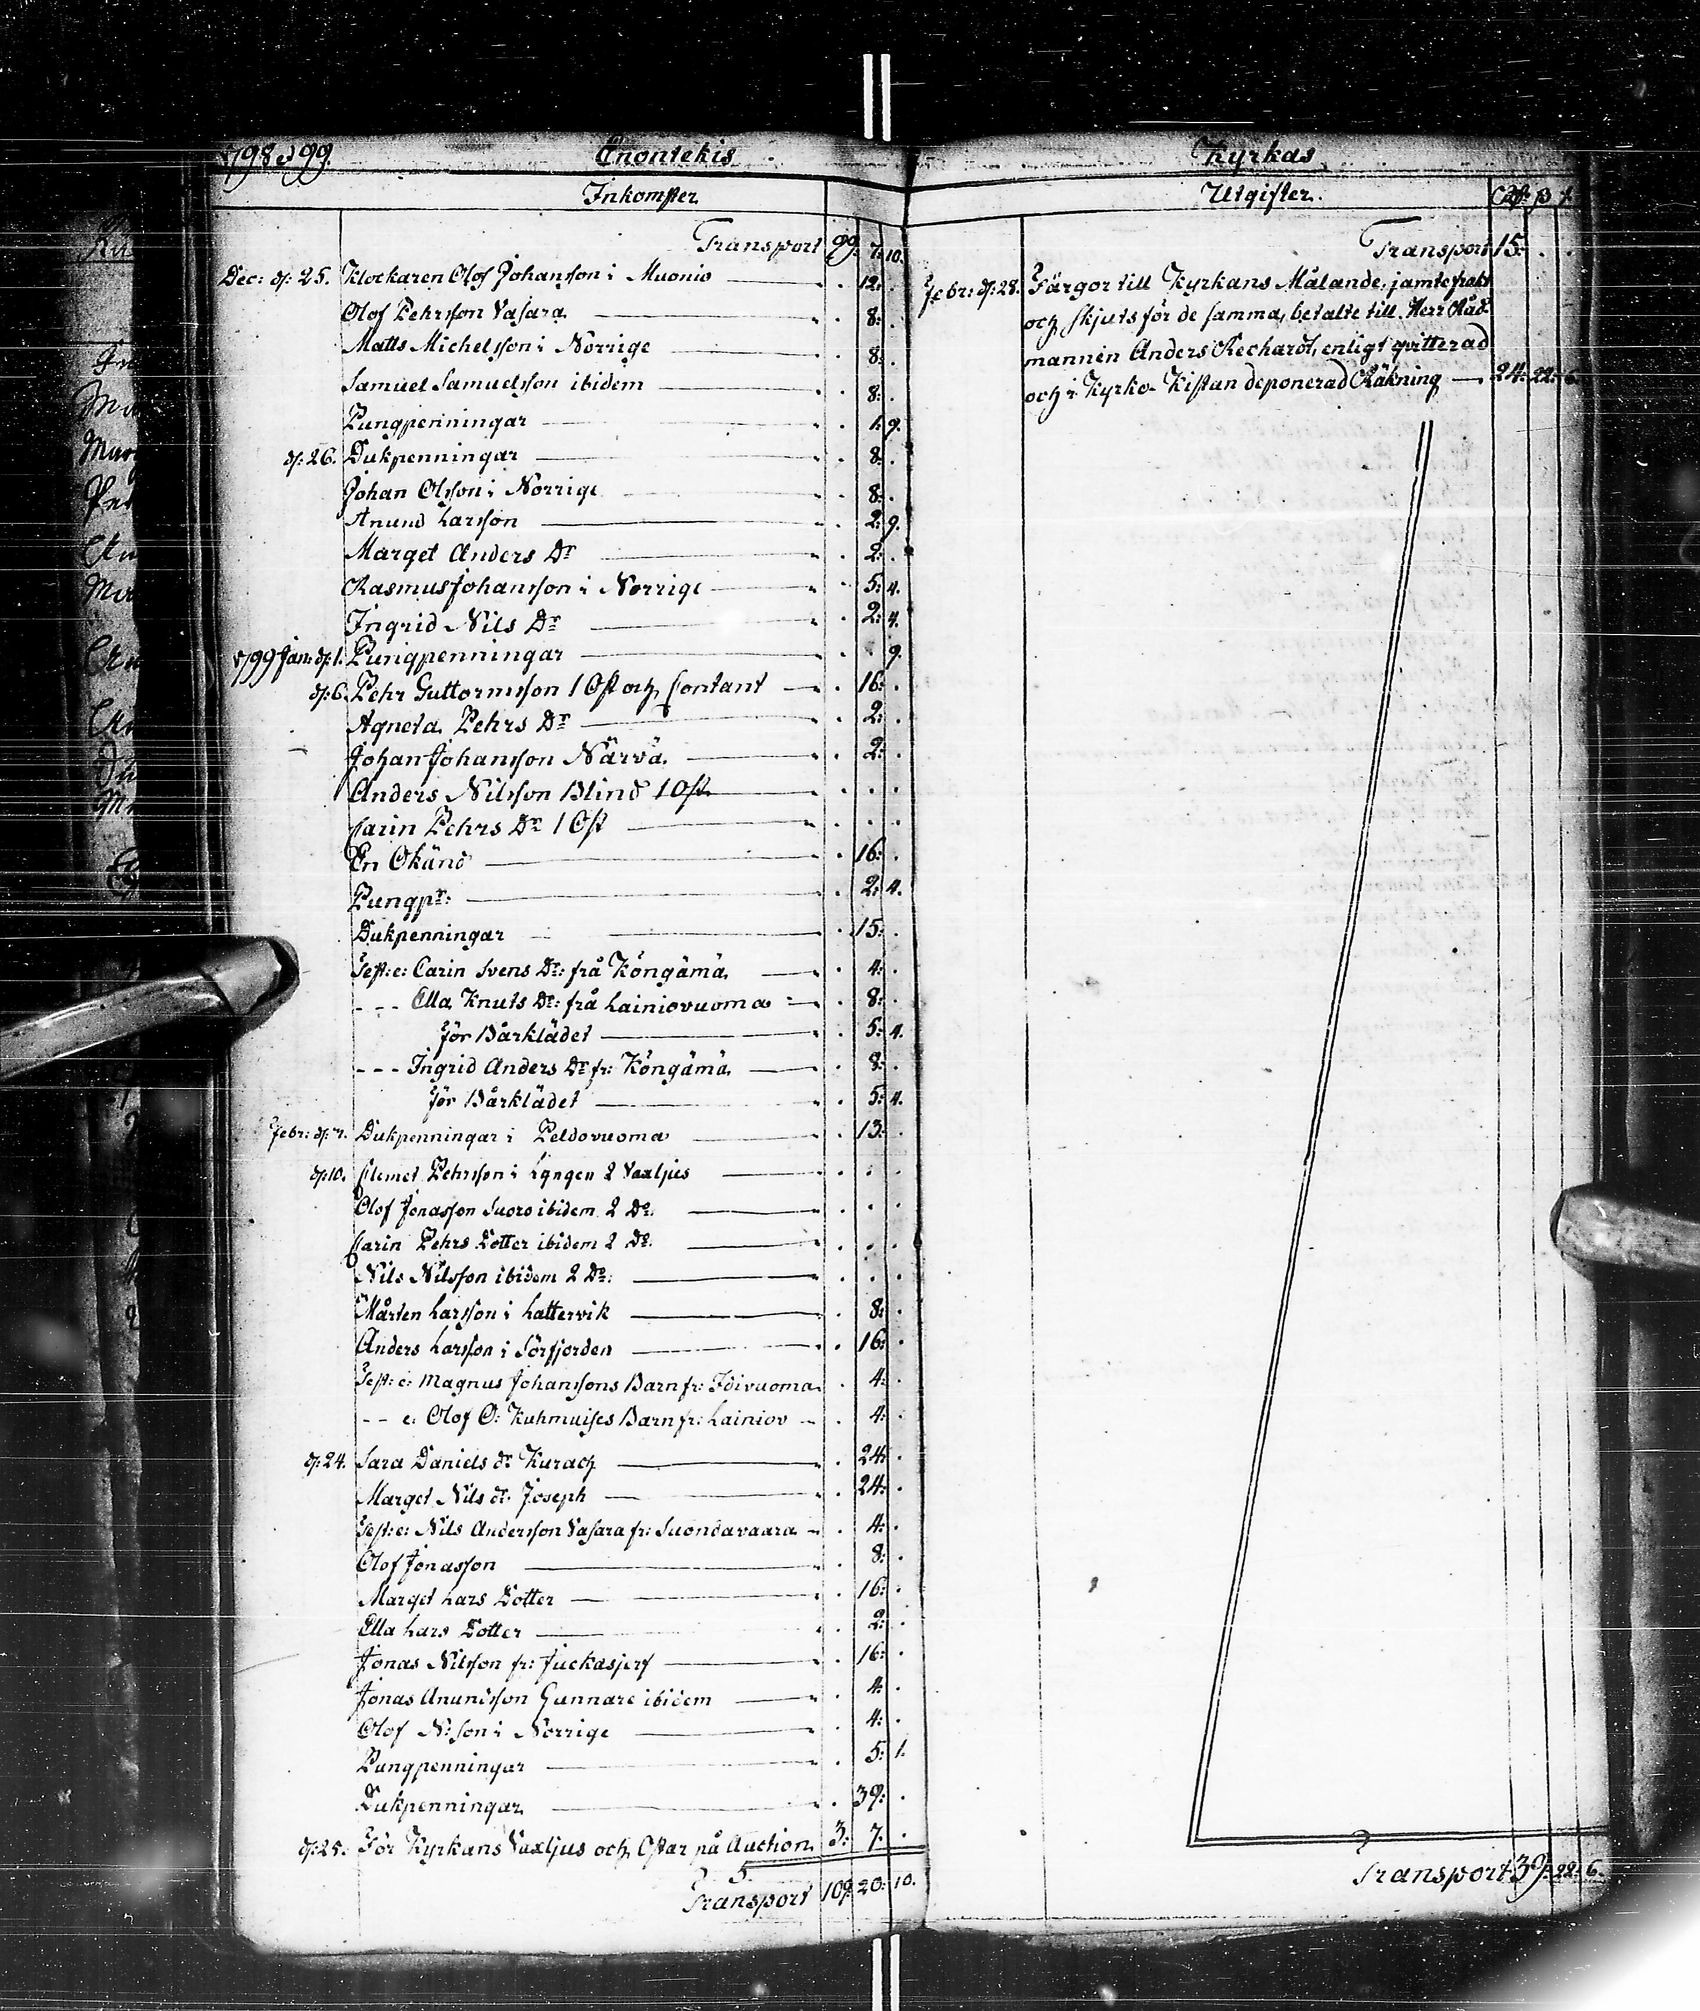 1798 & 99. Enontekis
Inkomster
Transport 99. 7. 10.
Dec: d: 25. Klockaren Olof Johansson i Muonio . 12: .
Olof Pehrsson Vasara . 8: .
Matts Michelsson i Norrige . 8: .
Samuel Samuelsson ibidem . 8: .
Pungpenningar . 1. 9.
d: 26. Dukpenningar . 8: .
Johan Olsson i Norrige . 8: .
Anund Larsson . 2: 9.
Marget Anders Dr . 2: .
Rasmus Johansson i Norrige . 5: 4.
Ingrid Nils Dr . 2: 4.
1799 Jan: d: 1. Pungpenningar . . 9.
d: 6. Pehr Guttormsson 1 Ost och Contant . 16: .
Agneta Pehrs Dr . 2: .
Johan Johansson Närvä . 2: .
Anders Nilsson Blind 1 Ost . . .
Carin Pehrs Dr 1 Ost . . .
En Okänd . 16: .
Pungpr: . 2: 4.
Dukpenningar . 15: .
Test: e: Carin Svens Dr: frå Köngämä . 4: .
- - - Ella Knuts Dr: frå Lainiovuoma . 8: .
för Bårklädet . 5: 4.
- - - Ingrid Anders Dr fr: Köngämä . 8: .
för Bårklädet . 5: 4.
Febr: d: 7. Dukpenningar i Peldovuoma . 13: .
d: 10. Clemet Pehrsson i Lyngen 2 Vaxljus . . .
Olof Jonasson Suoro ibidem 2 Do: . . .
Carin Pehrs Dotter ibidem 2 Do. . . .
Nils Nilsson ibidem 2 Do: . . .
Mårten Larsson i Lattervik . 8: .
Anders Larsson i Sörfjorden . 16: .
Test: e: Magnus Johanssons Barn fr: Idivuoma . 4: .
- - e: Olof O: Kuhmuises Barn fr: Lainiov . 4: .
d: 24. Sara Daniels dr Kurach . 24: .
Marget Nils dr. Joseph . 24: .
Test: e: Nils Andersson Vasara fr: Suondavaara . 4: .
Olof Jonasson . 8: .
Marget Lars Dotter . 16: .
Ella Lars Dotter . 2: .
Jonas Nilsson fr: Juckasjerf . 16: .
Jonas Anundsson Gunnare ibidem . 4: .
Olof N:son i Norrige . 4: .
Pungpenningar . 5: 1.
Dukpenningar . 39: .
d: 25. För Kyrkans Vaxljus och Ostar på Auction 3: 7. .
Transport 109: 20: 10.
Kyrkas
Utgifter.
Transport 15: . .
Febr: d: 28. Färgor till Kyrkans Målande, jamte frakt
och skjuts för de samma, betalte till Herr Råd-
mannen Anders Rechardt, enligt qvitterad
och i Kyrko-Kistan deponerad Räkning 24: 22: 6.
Transport 39: 22: 6.